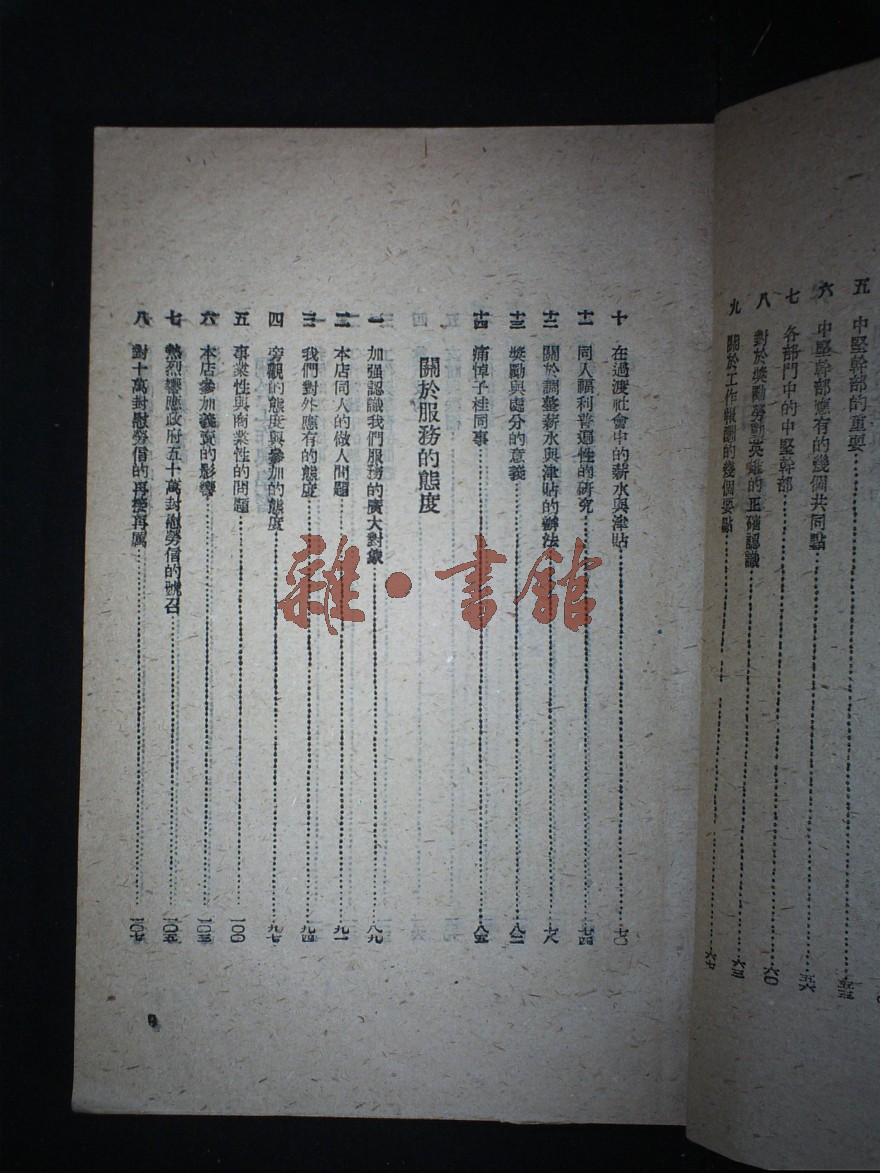 五 中堅幹部的重要 五三
六 中堅幹部應有的幾個共同點 五六
七 各部門中的中堅幹部 六〇
八 對於獎勵勞動英雄的正確認識 六三
九 關於工作報酬的幾個要點 六七
十 在過渡社會中的薪水與津貼 七〇
十一 同人福利普遍性的研究 七四
十二 關於調整薪水與津貼的辦法 七八
十三 獎勵與處分的意義 八二
十四 痛悼子桂同事 八五
關於服務的態度
一 加强認識我們服務的廣大對象 八九
二 本店同人的做人問題 九一
三 我們對外應有的態度 九四
四 旁觀的態度與參加的態度 九七
五 事業性與商業性的問題 一〇〇
六 本店參加義賣的影響 一〇三
七 熱烈響應政府五十萬封慰勞信的號召 一〇五
八 對十萬封慰勞信的再接再厲 一〇七
雜·書館